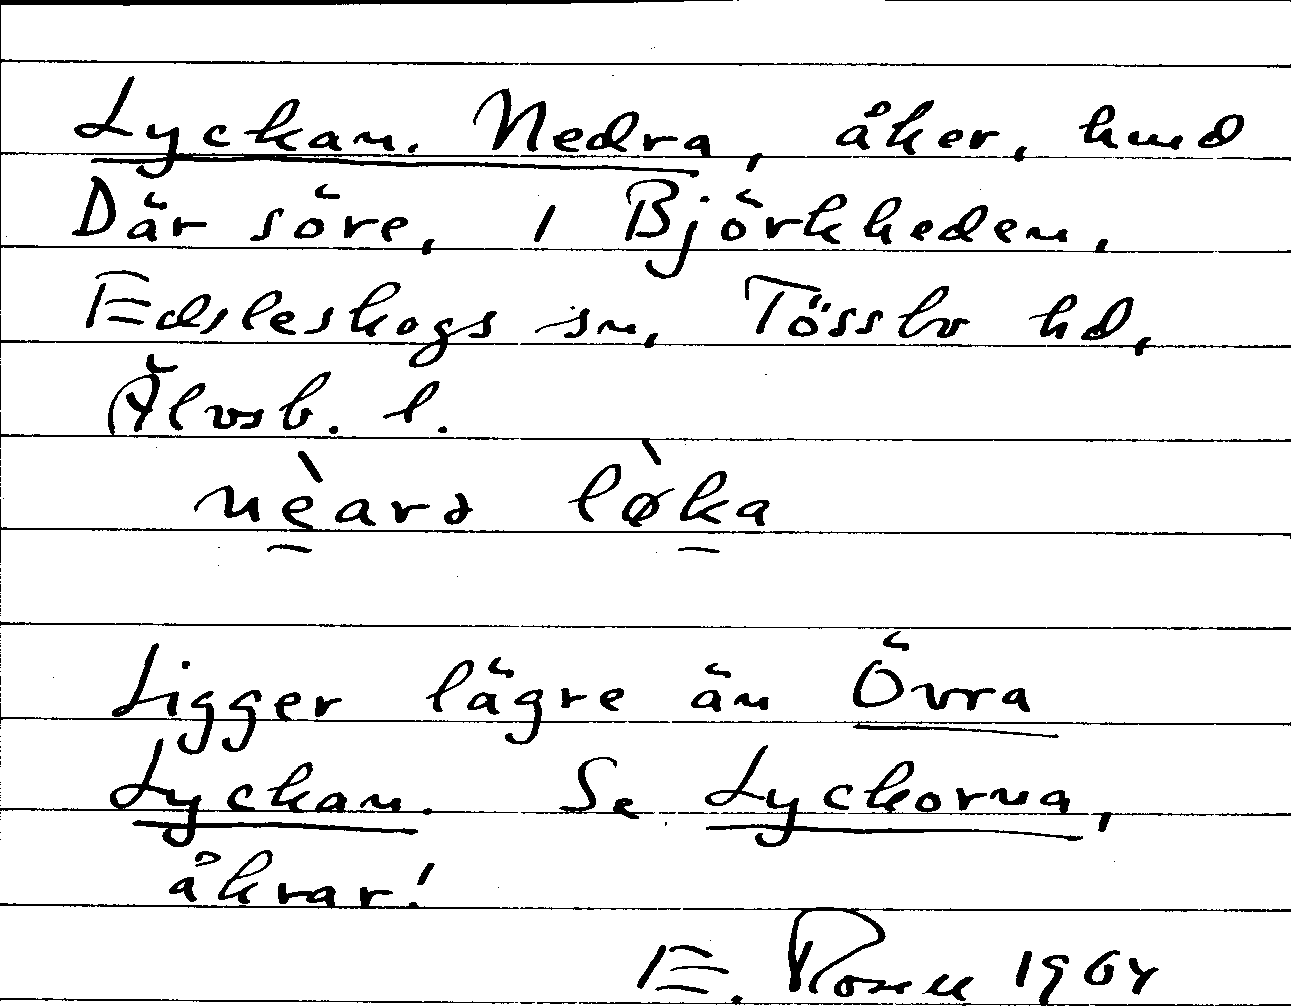 Lyckan. Nedra, åker, hmd
Där söre, i Björkheden,
Edsleskogs sn, Tössbo hd,
Älvsb. l.
nèarə lø̀ka
Ligger lägre än Övra
Lyckan. Se Lyckorna,
åkrar!
E. Rosell 1964